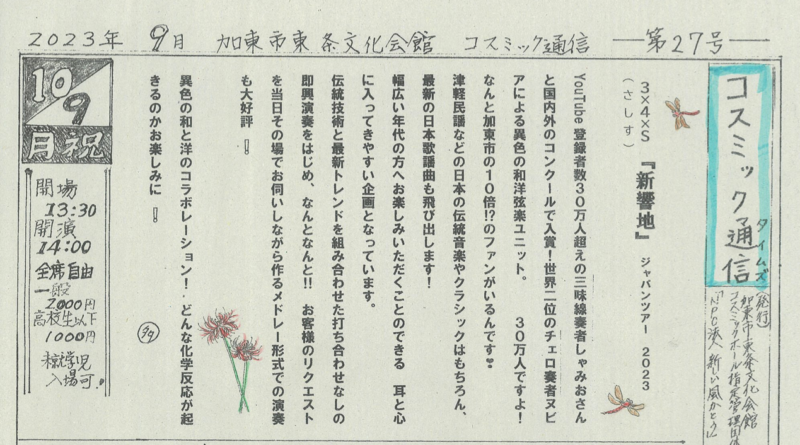 2023年 9月 加東市東条文化会館 コスミック通信 ―第27号―
コスミック通信
タイムズ
(発行)
加東市東条文化会館
コスミックホール指定管理者
NPO法人 新しい風かとう
3×4×S 『新響地』 ジャパンツアー 2023
(さしす)
YouTube 登録者数30万人超えの三味線奏者しゃみおさん
と国内外のコンクールで入賞!世界二位のチェロ奏者ヌビ
アによる異色の和洋弦楽ユニット。 30万人ですよ!
なんと加東市の10倍!?のファンがいるんです❢
津軽民謡などの日本の伝統音楽やクラシックはもちろん、
最新の日本歌謡曲も飛び出します!
幅広い年代の方へお楽しみいただくことのできる 耳と心
に入ってきやすい企画となっています。
伝統技術と最新トレンドを組み合わせた打ち合わせなしの
即興演奏をはじめ、なんとなんと!! お客様のリクエスト
を当日その場でお伺いしながら作るメドレー形式での演奏
も大好評 !
異色の和と洋のコラボレーション!どんな化学反応が起
きるのかお楽しみに !
10/9
月祝
開場
13:30
開演
14:00
全席自由
一般
2000円
高校生以下
1000円
未就学児
入場可